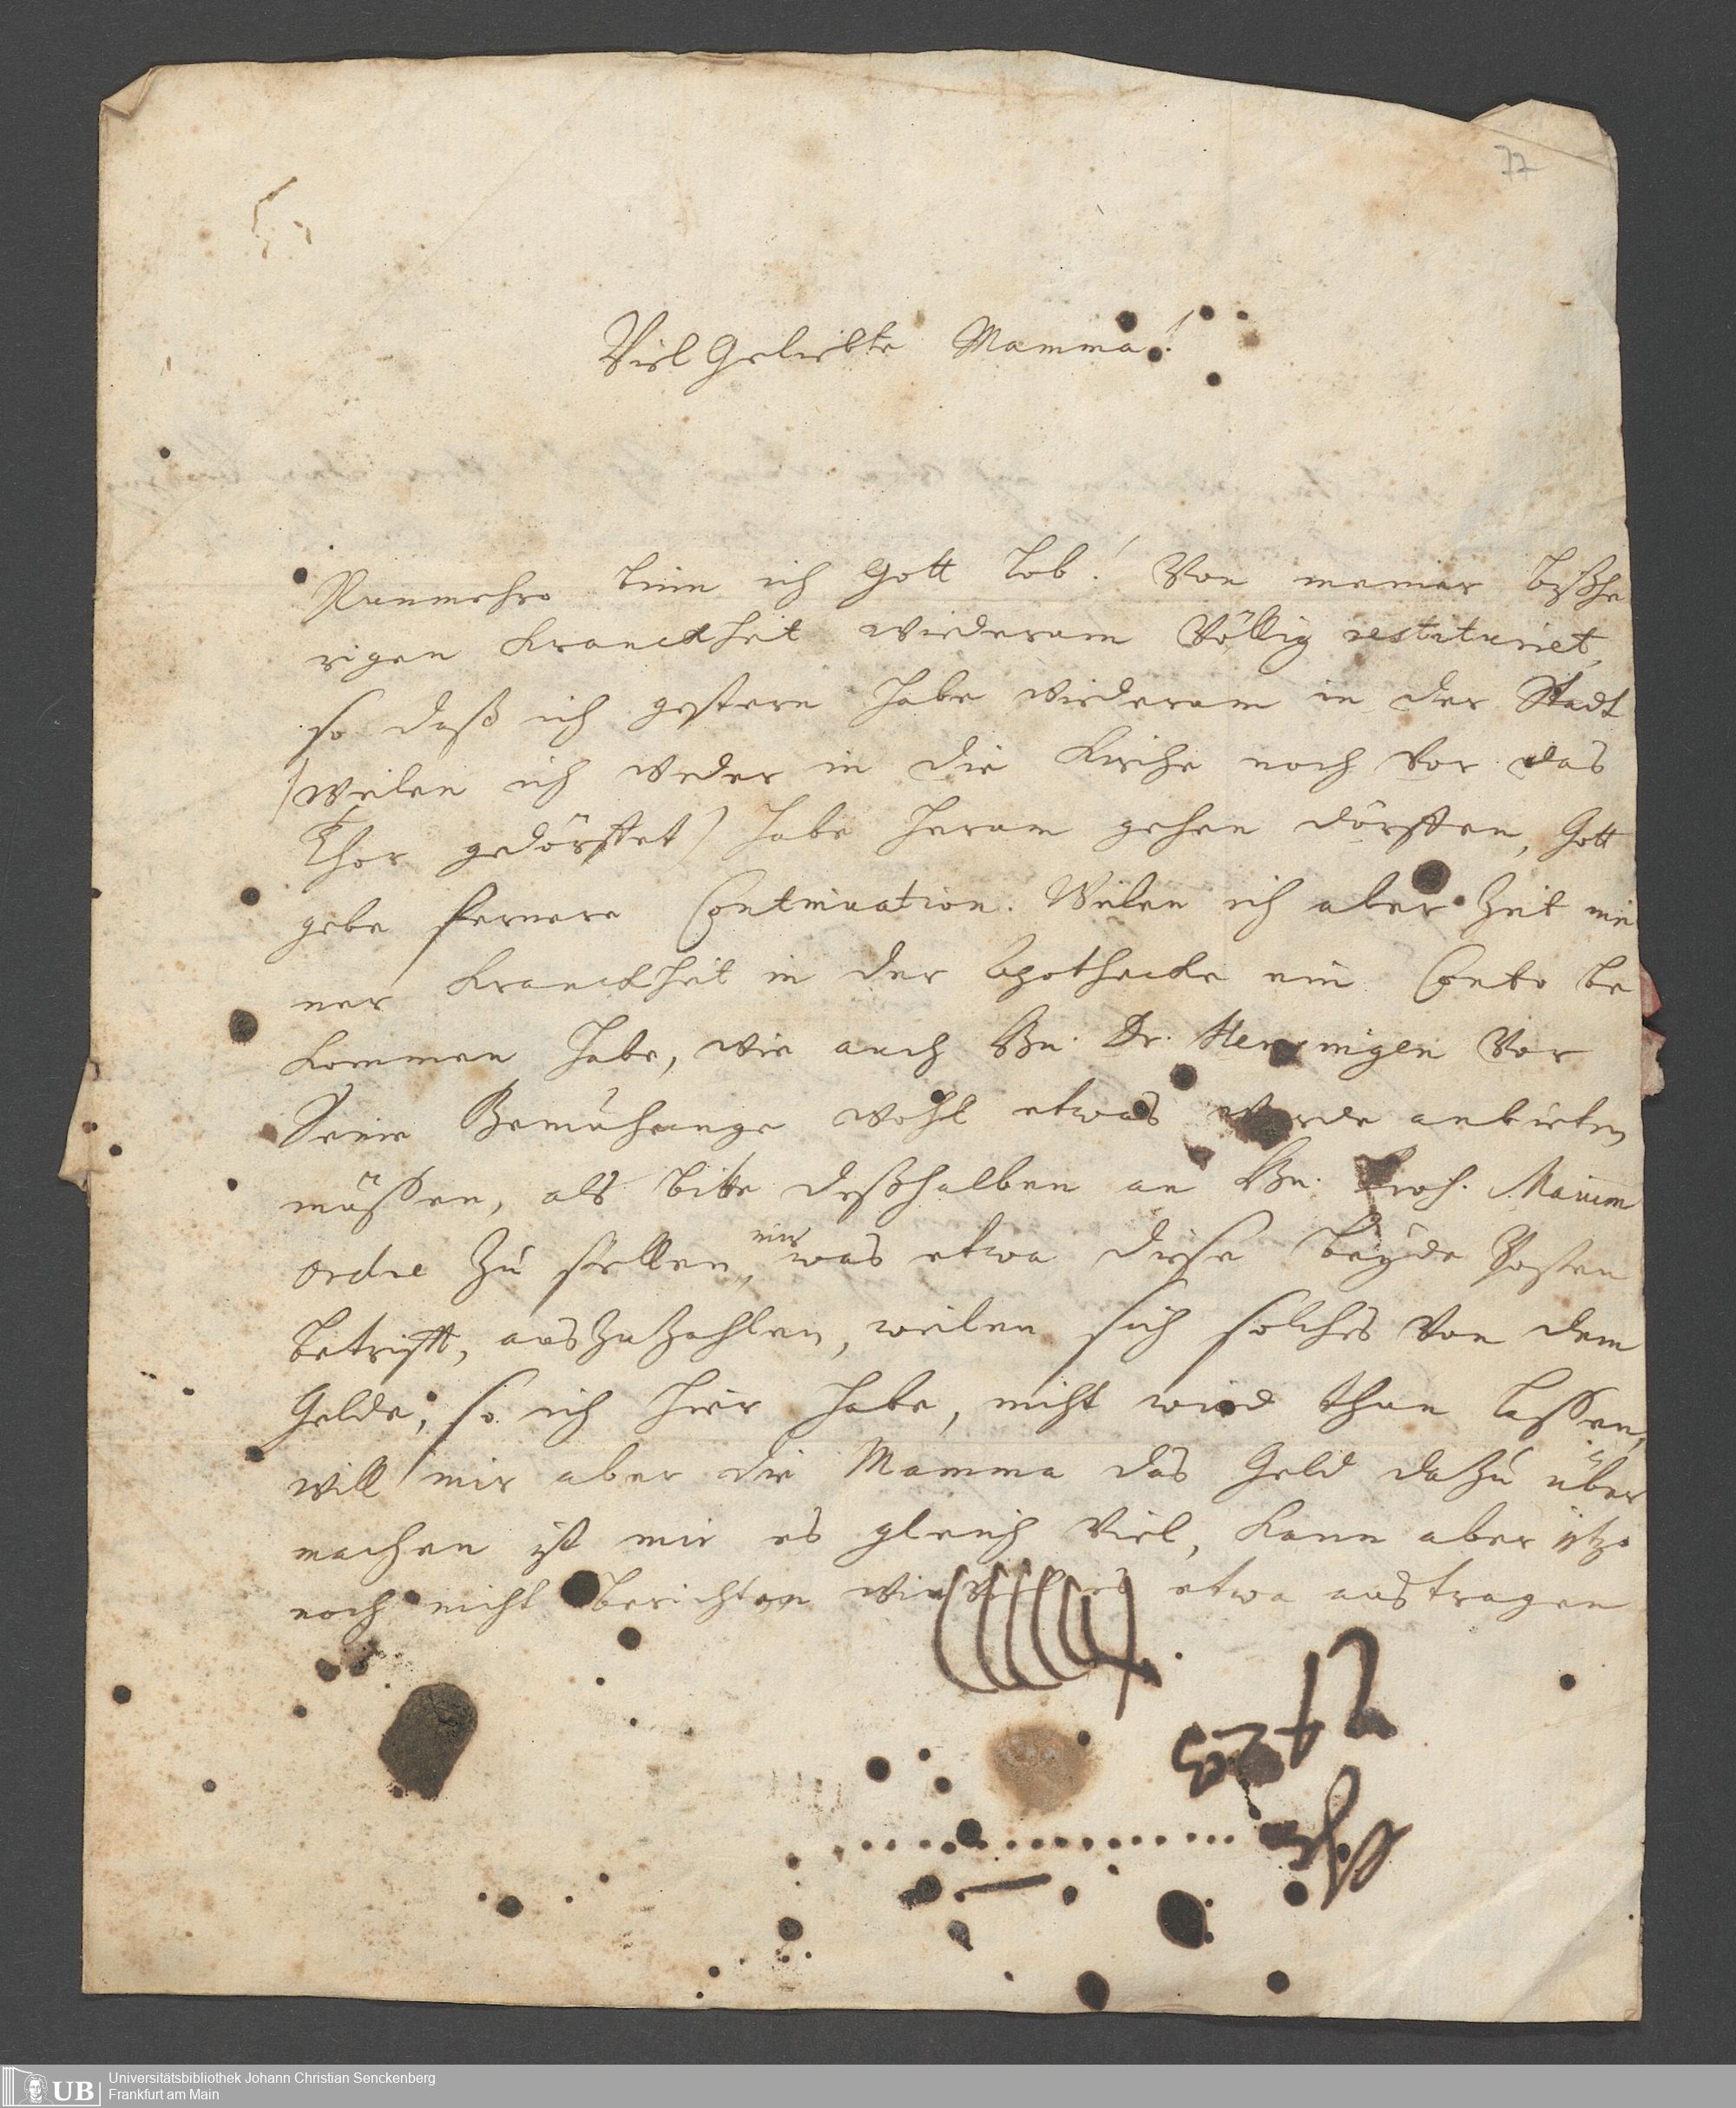 77
Viel Geliebte Mamma!
Nunmehro binn ich Gott Lob! Von meiner bißhe
rigen Kranckheit wiederum Völlig restituiret,
so daß ich gestern habe wiederum in der Stadt
(weilen ich weder in die Kirche noch vor das
Thor gedörffet) habe herum gehen dörffen, Gott
gebe fernere Continuation. Weilen ich aber Zeit mei
ner Kranckheit in der Apothecke ein Conto be
kommen habe, wie auch Hn. Dr. Henningen vor
Seine Bemühunge wohl etwas werde anbieten
müssen, als bitte deßhalben an Hn. Prof.
ordre zu stellen, mir was etwa diese beyde Posten
betrifft, auszuzahlen, weilen sich solches von dem
Gelde, so ich hier habe, nicht wird thun lassen,
will mir aber die Mamma das Geld dazu über
machen ist mir es gleich viel, kann aber itzo
noch nicht berichten wie viel es etwa austragen
Universitätsbibliothek Johann Christian Senckenberg
Frankfurt am Main
UB